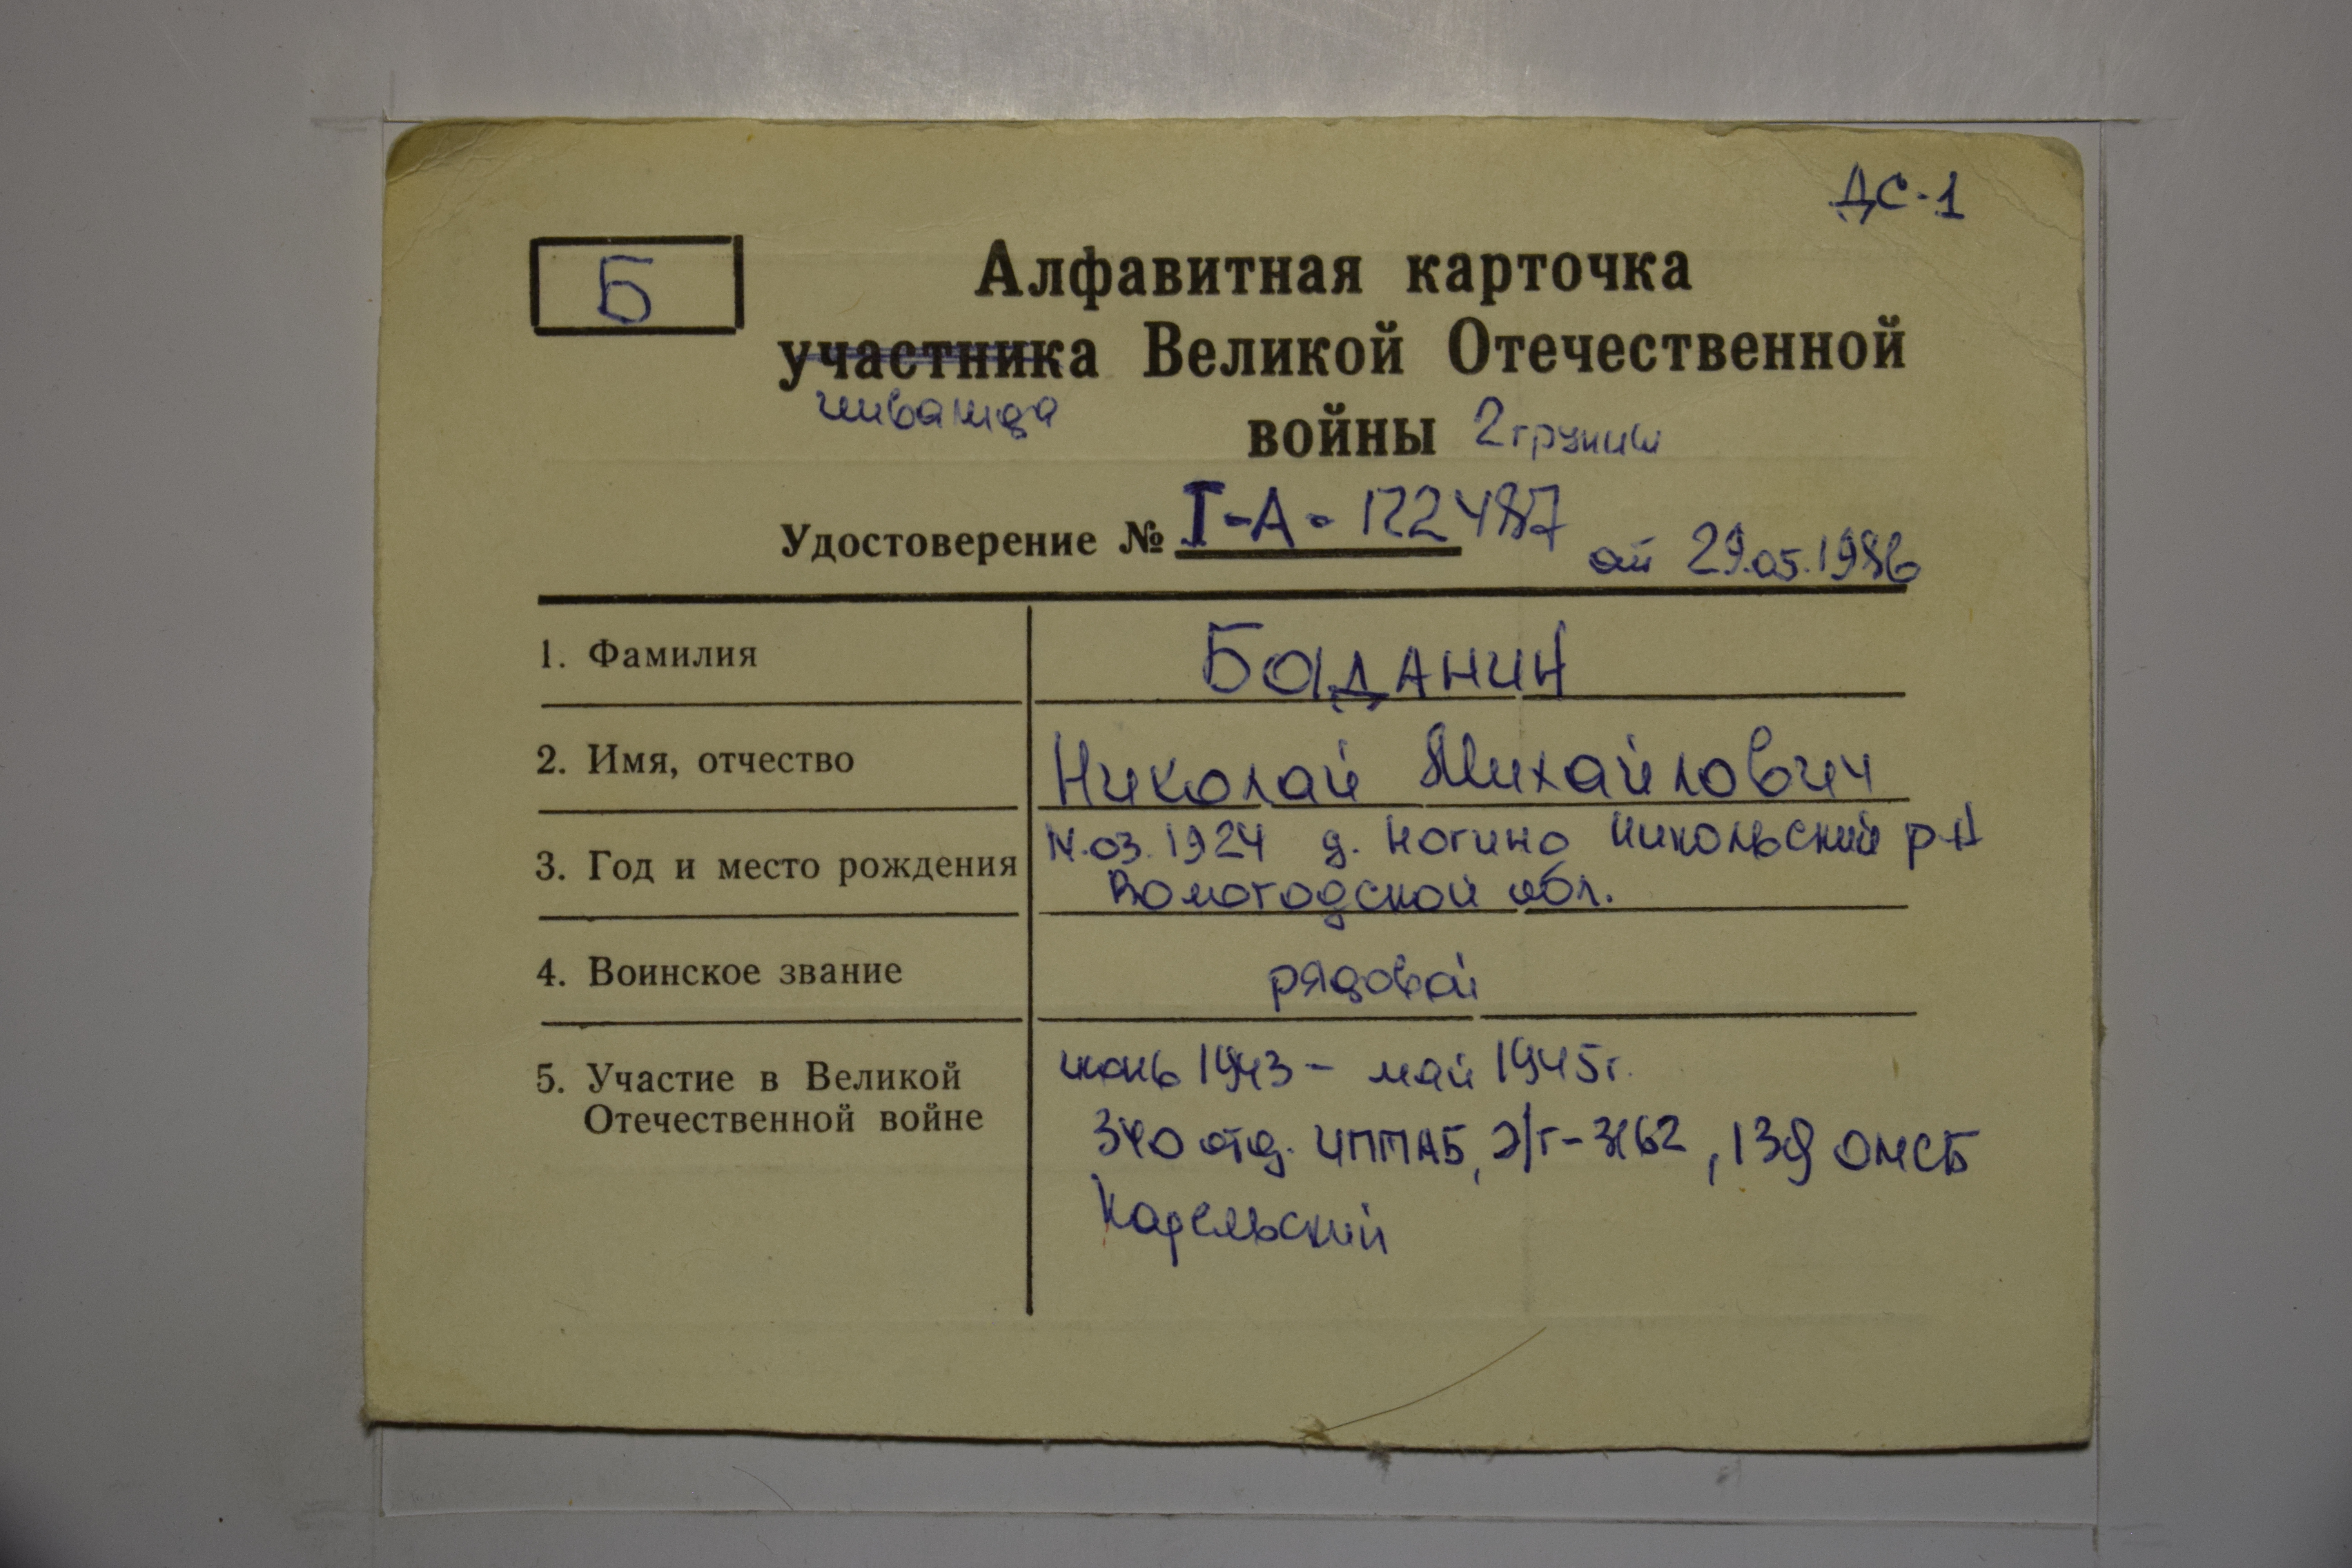 ДС-1
Б
Алфавитная карточка
участника Великой Отечественной
инвалида
войны 2 группы
Удостоверение № I-А- 122487 от 29.05.1986
1. Фамилия Баданин
2. Имя, отчество Николай Михайлович
3. Год и место рождения 03.1924 д. Ногино Никольский р-н
Вологодской обл.
4. Воинское звание рядовой
5. Участие в Великой июнь 1943 - май 1945г.
Отечественной войне 340 отд. э/г-3162, 139 ОМСБ
Карельский